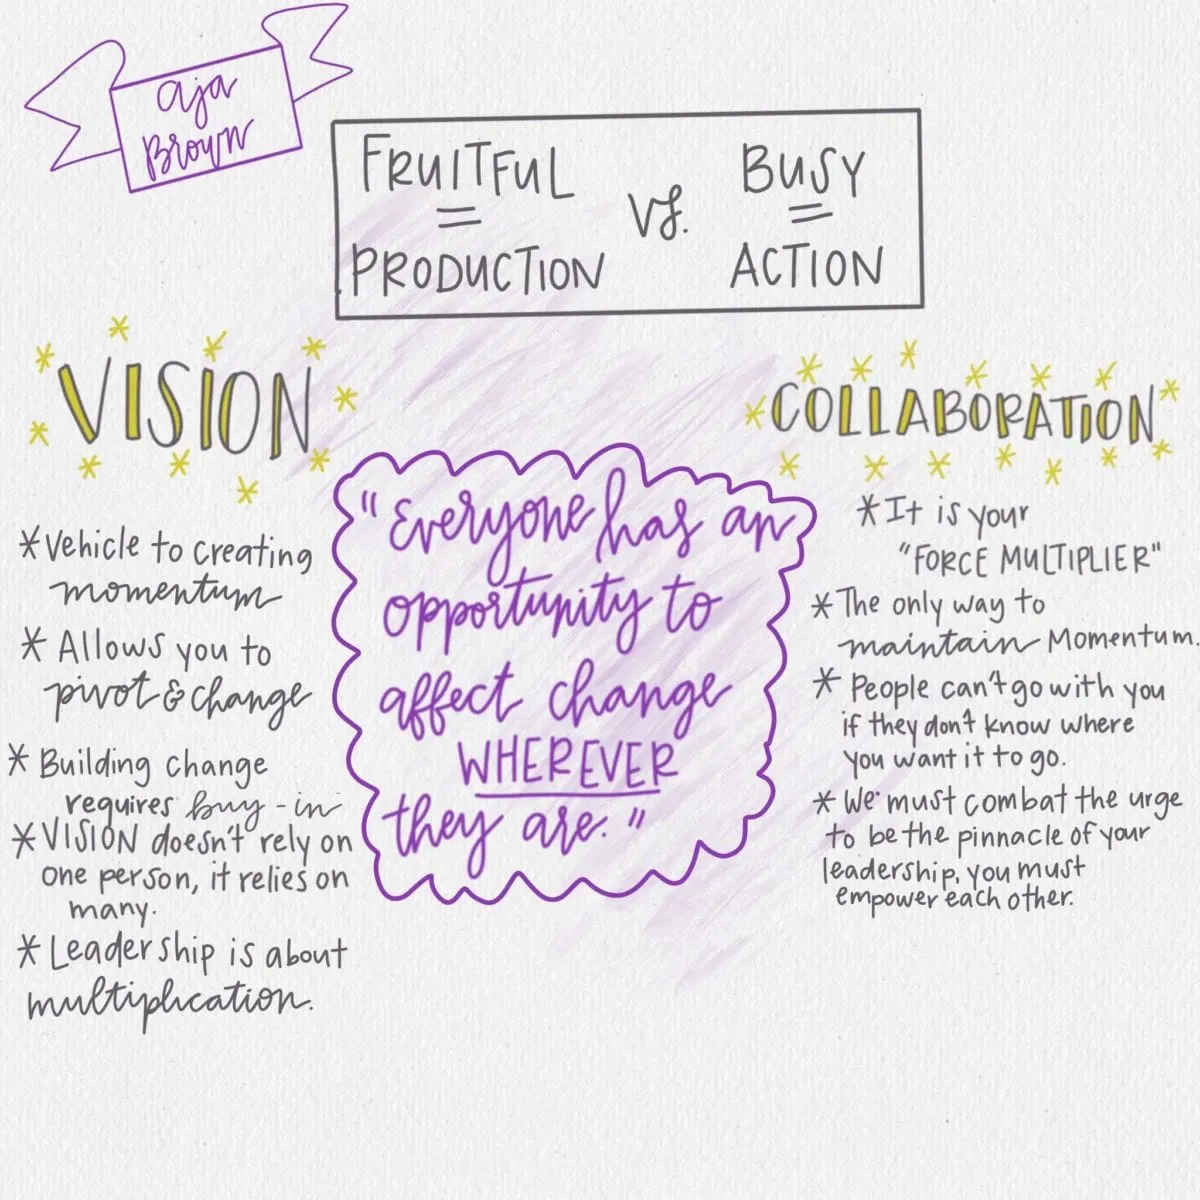 aja
Brown
FRUITFUL
=
PRODUCTION
vs.
BUSY
=
ACTION
VISION
*Vehicle to creating
momentum
*Allows you to
pivot & change
*Building change
requires buy-in
*VISION doesn't rely on
one person, it relies on
many.
*Leadership is about
multiplication.
"Everyone has an
opportunity to
affect change
WHEREVER
they are."
COLLABORATION
*It is your
"FORCE MULTIPLIER"
*The only way to
maintain Momentum.
*People can't go with you
if they don't know where
you want it to go.
*We must combat the urge
to be the pinnacle of your
leadership, you must
empower each other.